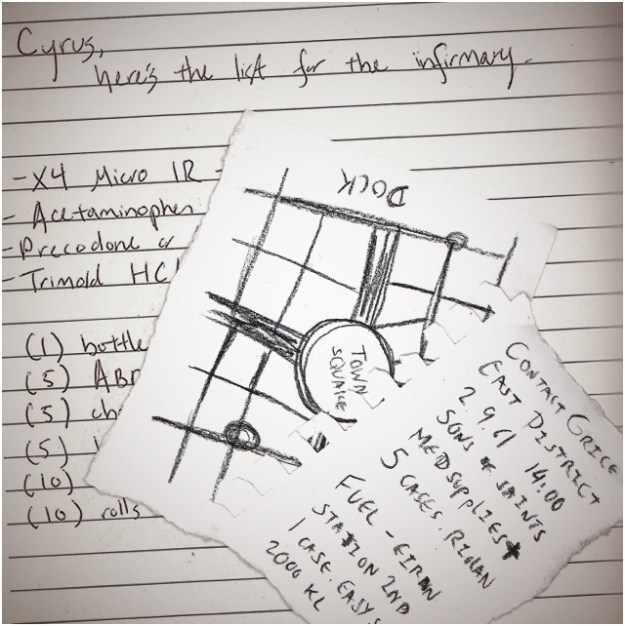 Cyrus,
here's the list for the infirmary.
- X4 Micro IR -
- Acetaminophen
- Precodone or
- Trimold HCl
(1) bottle
(5) ABD
(5) ch
(5)
(10)
(10) rolls
DOCK
TOWN
SQUARE
CONTACT GRICE
EAST DISTRICT
2.9.61 14:00
SONS OF SAINTS
MEDSUPPLIES
5 CASES. RIDAN
FUEL - EIRAN
STATION 2ND
1 CASE. EASY
2000 KL